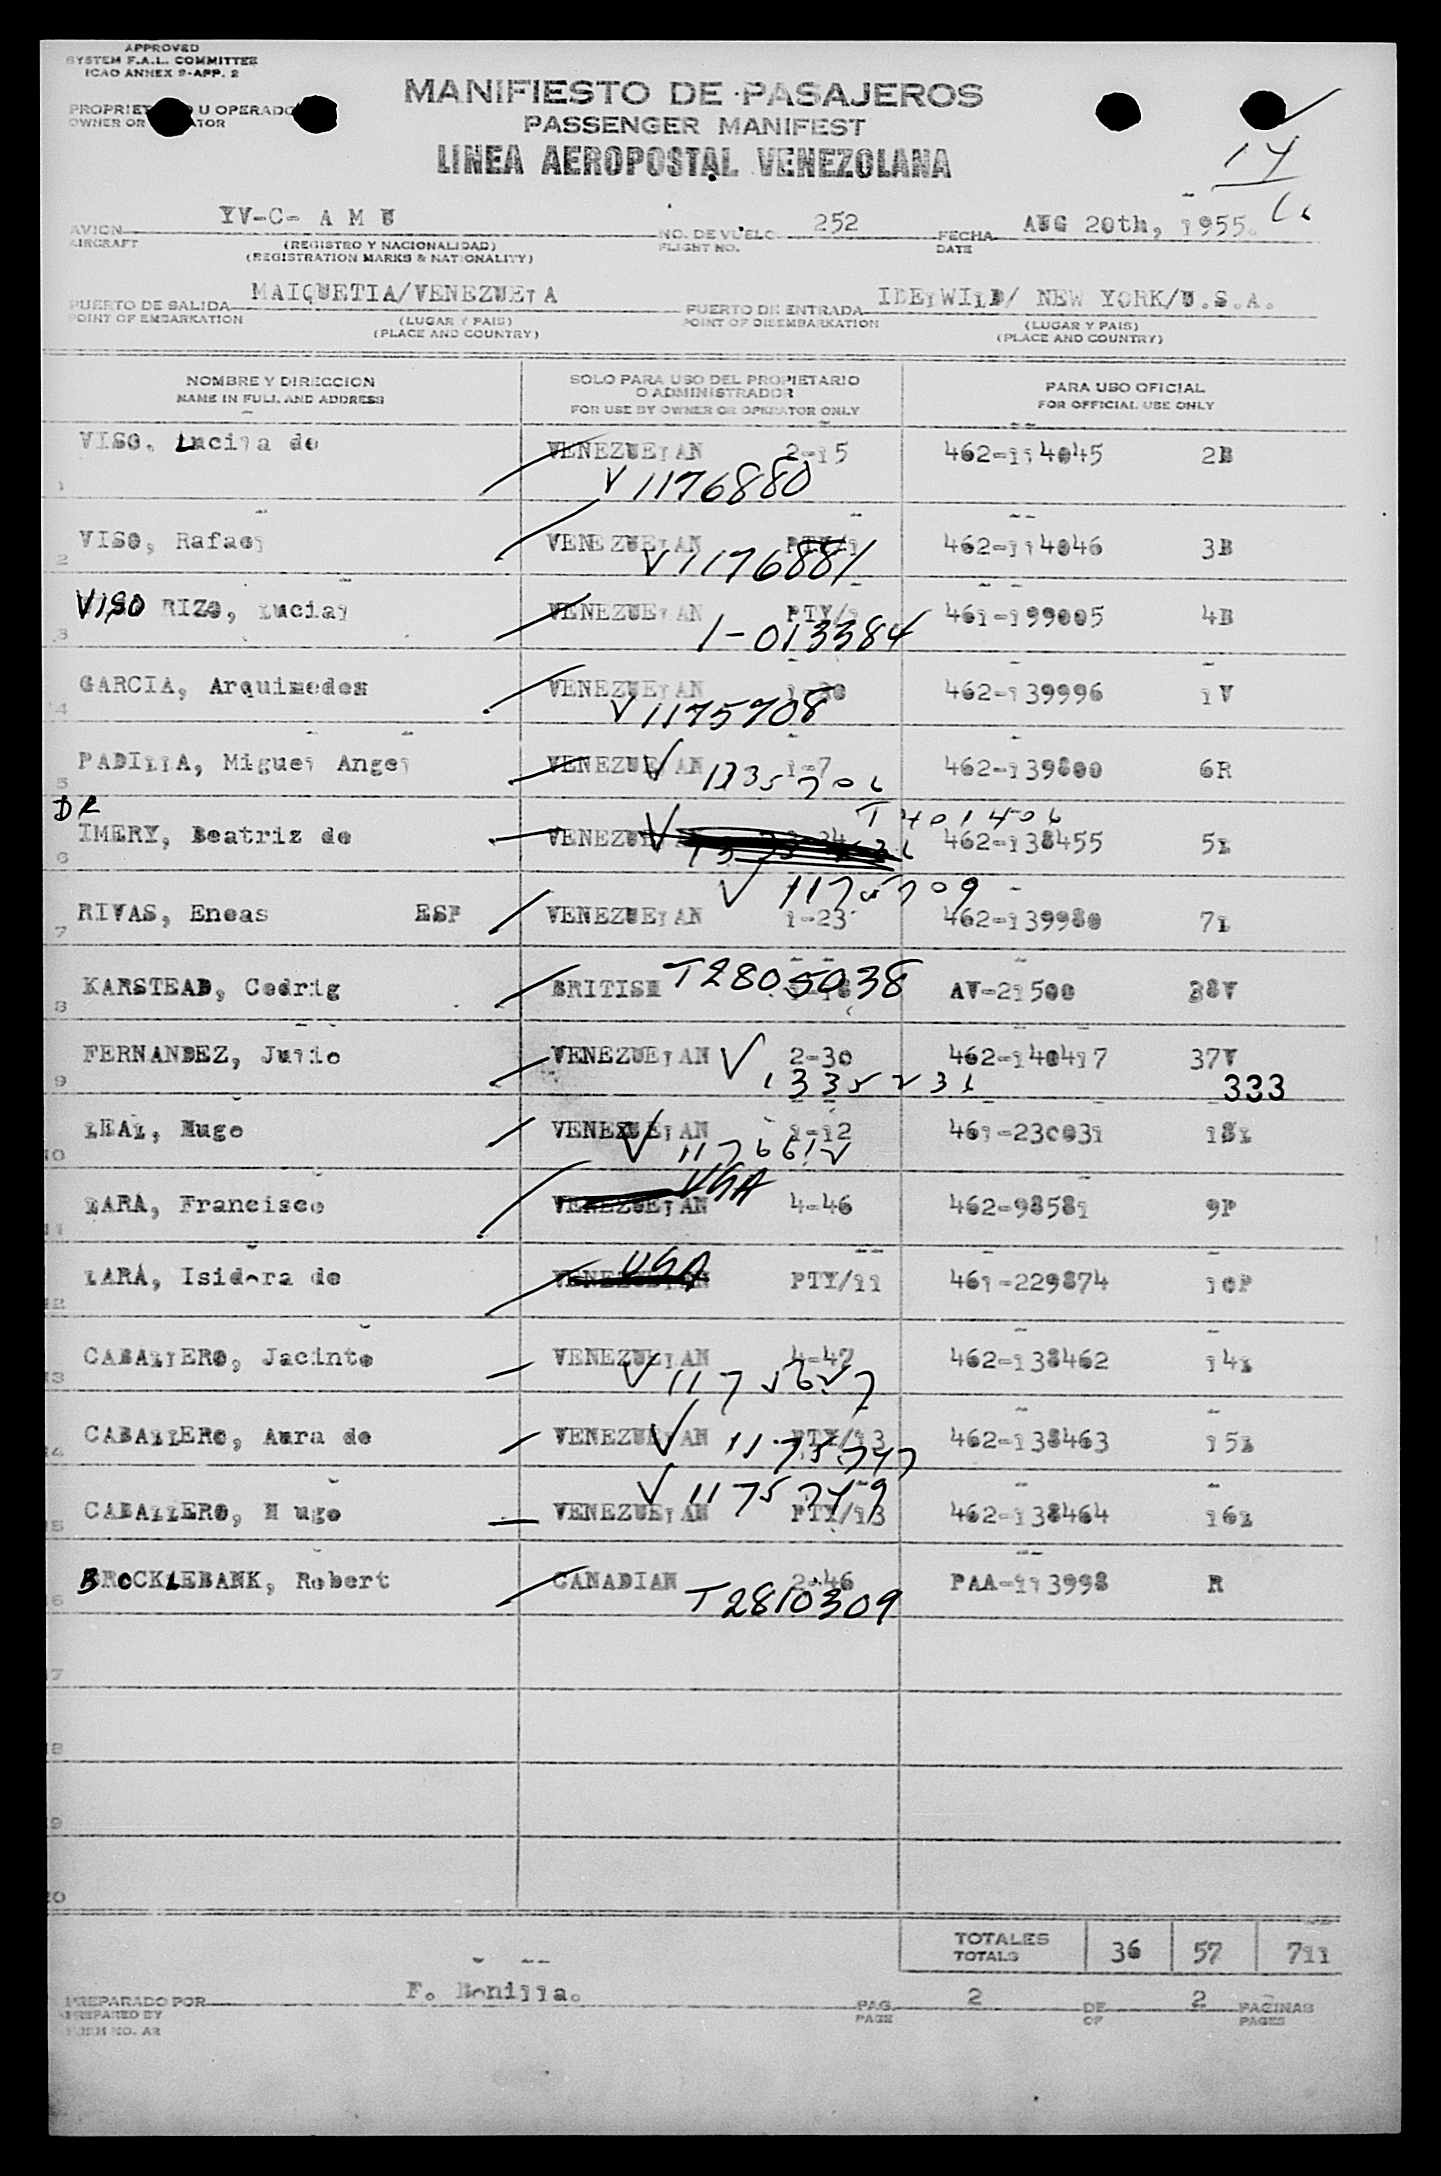 APPROVED
SYSTEM F.A.L. COMMITTEE
ICAO ANNEX 9-APP. 2
MANIFIESTO DE PASAJEROS
PROPRIET U OPERADO
OWNER OR ATOR
PASSENGER MANIFEST
LINEA AEROPOSTAL VENEZOLANA
14
AVION YV-C- A M U NO. DE VUELO 252 FECHA AUG 20th, 1955.
AIRCRAFT (REGISTRO Y NACIONALIDAD) FLIGHT NO. DATE
(REGISTRATION MARKS & NATIONALITY)
PUERTO DE SALIDA MAIQUETIA/VENEZUElA PUERTO DE ENTRADA IDElWIlD/ NEW YORK/U.S.A.
POINT OF EMBARKATION (LUGAR Y PAIS) POINT OF DISEMBARKATION (LUGAR Y PAIS)
(PLACE AND COUNTRY) (PLACE AND COUNTRY)
NOMBRE Y DIRECCION SOLO PARA USO DEL PROPIETARIO PARA USO OFICIAL
NAME IN FULL AND ADDRESS O ADMINISTRADOR FOR OFFICIAL USE ONLY
FOR USE BY OWNER OR OPERATOR ONLY
VISO, Lucila de VENEZUElAN 2-15 462-114045 2B
1 V 1176880
VISO, Rafael VENEZUElAN PTY/1 462-114046 3B
2 V 1176881
VISO RIZO, lucial VENEZUElAN PTY/1 461-199005 4B
3 1-013384
GARCIA, Arquimedes VENEZUElAN 1-20 462-139996 1V
4 V 1175708
PADIllA, Miguel Angel VENEZUElAN 1-7 462-139800 6R
5 V 1335706
DE T 401406
IMERY, Beatriz de 462-138455 5l
6
V 1175709
RIVAS, Eneas ESP VENEZUElAN 1-23 462-139980 7l
7
KARSTEAD, Cedrig BRITISH T2805038 AV-21500 38V
8
FERNANDEZ, Julio VENEZUElAN 2-30 462-140417 37V
9 V 1335231 333
lEAl, Hugo VENEZUElAN 1-12 461-230031 18l
10 V 117661V
USA
lARA, Francisco VENEZUElAN 4-46 462-98581 9P
11
USA
lARA, Isidora de VENEZUElAN PTY/11 461-229874 10P
12
CABAllERO, Jacinto VENEZUElAN 4-47 462-138462 14l
13
CABAllERO, Aura de VENEZUElAN PTY/13 462-138463 15l
14 V 1175747
V 1175749
CABAllERO, H ugo VENEZUElAN PTY/13 462-138464 16l
15
BROCKLEBANK, Robert CANADIAN 2-46 PAA-113998 R
16 T2810309
17
18
19
20
TOTALES 36 57 711
TOTALS
PREPARADO POR F. Bonilla. PAG. 2 DE 2 PAGINAS
PREPARED BY PAGE OF PAGES
FORM NO. AR